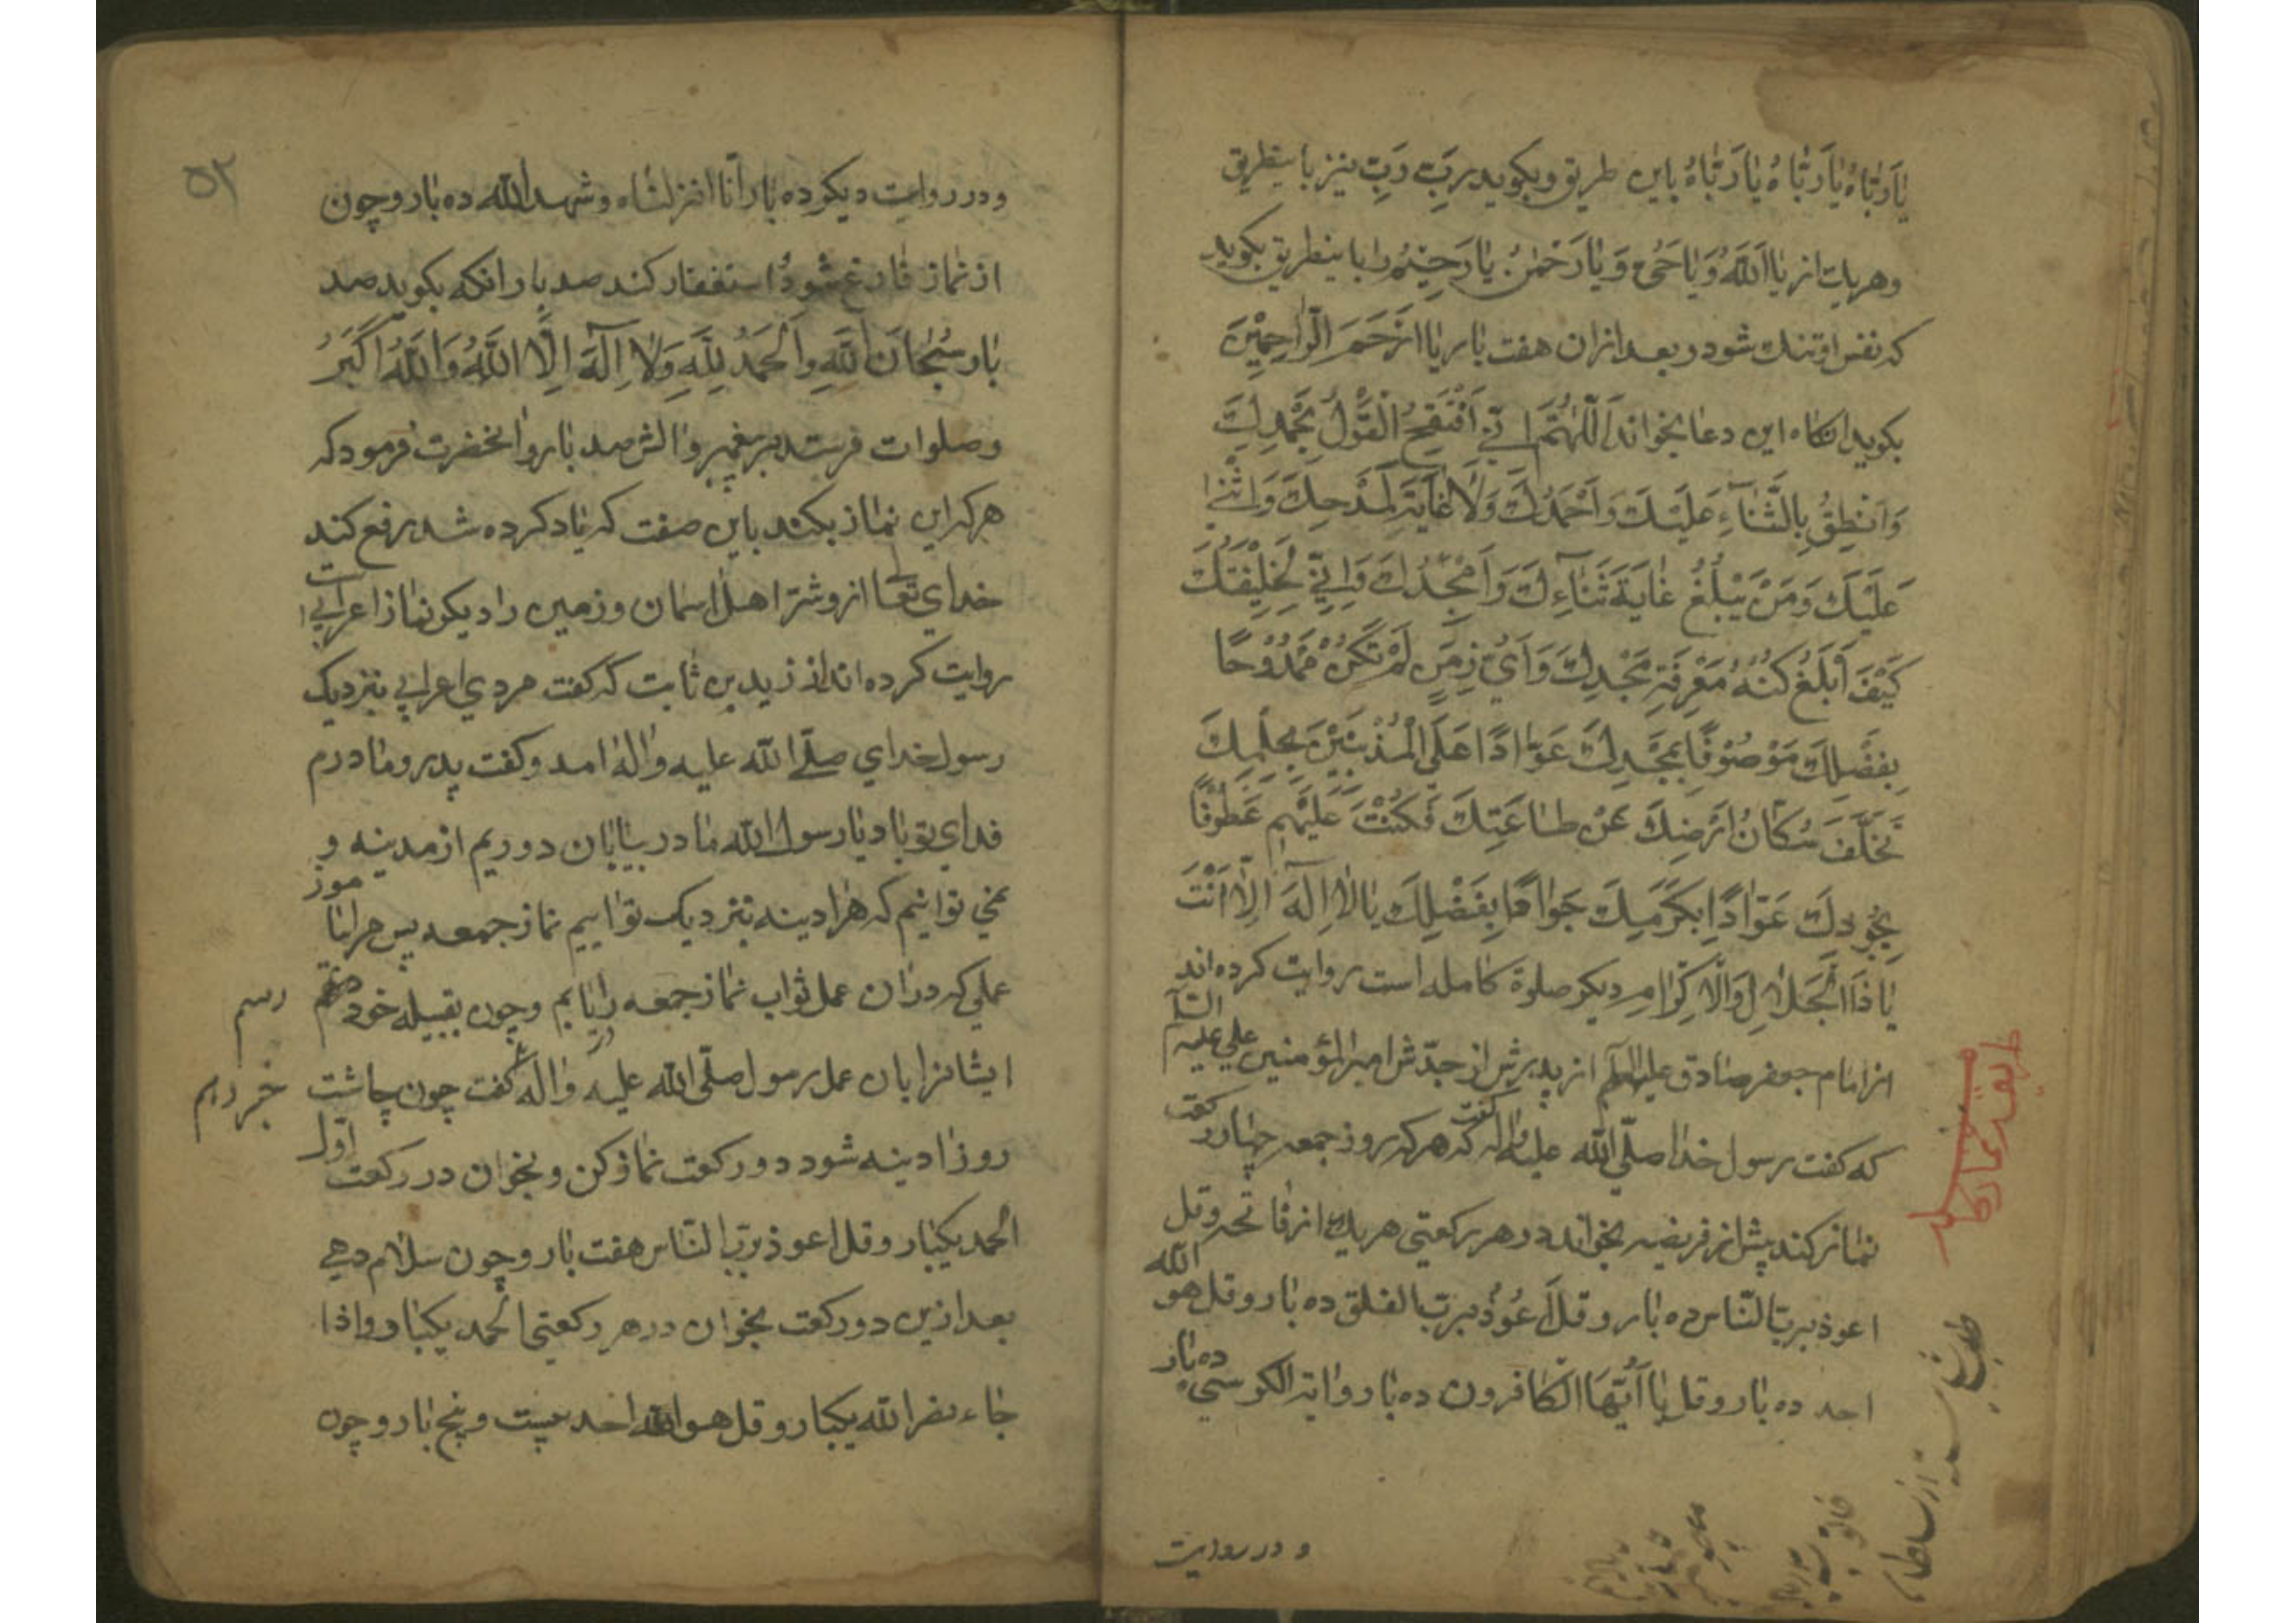 یَا رَبَّاهُ یَا رَبَّاهُ یَا رَبَّاهُ باین طریق وبکوید رَبِّ رَبِّ نیز باینطریق
وهریك از یَا اَللّٰهُ وَیَا حَیُّ وَیَا رَحْمٰنُ یَا رَحِیْمُ را باینطریق بکوید
که نفس او تنك شود وبعد ازان هفت بار یَا اَرْحَمَ الرَّاحِمِیْنَ
بکوید انکاه این دعا بخواند اَللّٰهُمَّ اِنِّی اَفْتَتِحُ الْقَوْلَ بِحَمْدِكَ
وَاَنْطِقُ بِالثَّنَآءِ عَلَیْكَ وَاَحْمَدُكَ وَلَا غَایَةَ لِمَدْحِكَ وَاُثْنِی
عَلَیْكَ وَمَنْ یَبْلُغُ غَایَةَ ثَنَآءِكَ وَاُمَجِّدُكَ وَاَنّٰی لِخَلِیْقَتِكَ
کَیْفَ اَبْلُغُ کُنْهَ مَعْرِفَةِ مَجْدِكَ وَاَیُّ زَمَنٍ لَمْ تَکُنْ مَمْدُوْحًا
بِفَضْلِكَ مَوْصُوْفًا بِمَجْدِكَ عَوَّادًا عَلَی الْمُذْنِبِیْنَ بِحِلْمِكَ
تَخَلَّفَ سُکَّانُ اَرْضِكَ عَنْ طَاعَتِكَ فَکُنْتَ عَلَیْهِمْ عَطُوْفًا
بِجُوْدِكَ عَوَّادًا بِکَرَمِكَ جَوَادًا بِفَضْلِكَ یَا لَا اِلٰهَ اِلَّا اَنْتَ
یَا ذَا الْجَلَالِ وَالْاِکْرَامِ دیکر صلوة کامله است روایت کرده اند
از امام جعفر صادق علیه السلم از پدرش از جدّش امیر المؤمنین علی علیه السّلم
که کفت رسول خدا صلّی الله علیه واله کفت که هرکه روز جمعه چهار رکعت
نماز کند پیش از فریضه بخواند در هر رکعتی هریك از فاتحه وقل
اعوذ بربّ النّاس ده بار وقل اَعُوْذُ بربّ الفلق ده بار وقل هو الله
احد ده بار وقل یَا اَیُّهَا الکافرون ده بار وایة الکرسی ده بار
و در روایت
۵۲
و در روایت دیکر ده بار انّا انزلناه وشهد الله ده بار وچون
از نماز فارغ شود استغفار کند صد بار انکه بکوید صد
بار سُبْحَانَ اللّٰهِ وَالْحَمْدُ لِلّٰهِ وَلَا اِلٰهَ اِلَّا اللّٰهُ وَاللّٰهُ اَکْبَرُ
وصلوات فرستد بر پیغمبر والش صد بار وانحضرت فرمود که
هرکه این نماز بکند باین صفت که یاد کرده شد رفع کند
خدای تعالی از و شرّ اهل اسمان وزمین را دیکر نماز اعرابی است
روایت کرده اند از زید بن ثابت که کفت مردی اعرابی بنزدیك
رسول خدای صلّی الله علیه واله امد وکفت پدر ومادرم
فدای تو باد یا رسول الله ما در بیابان دوریم از مدینه و
نمی توانیم که هر ادینه بنزدیك تو اییم نماز جمعه پس مرا بیاموز
عملی که در ان عمل ثواب نماز جمعه را یابم وچون بقبیله خود
رسم
ایشانرا بان عمل رسول صلّی الله علیه واله کفت چون چاشت
خبر دهم
روز ادینه شود دو رکعت نماز کن وبخوان در رکعت اوّل
الحمد یکبار وقل اعوذ بربّ النّاس هفت بار وچون سلام دهی
بعد ازین دو رکعت بخوان در هر رکعتی الحمد یکبار واذا
جاء نصر الله یکبار وقل هو الله احد بیست وپنج بار وچون